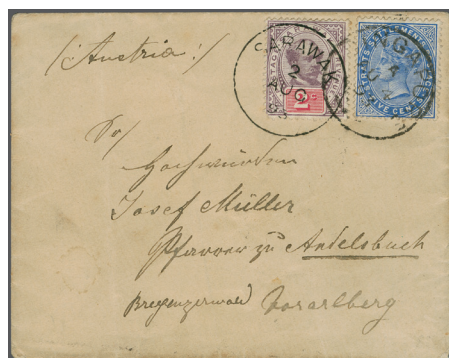 /Austria:/
SARAWAK
2
AUG
POSTAGE
2c
STRAITS SETTLEMENTS
FIVE CENTS
Hochwürden
Josef Müller
Pfarrer zu Andelsbuch
Bregenzerwald Vorarlberg